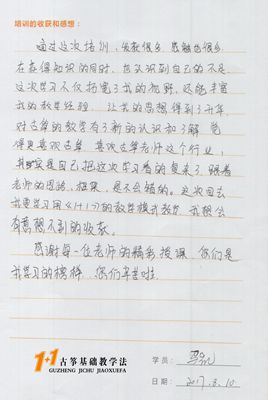 培训的收获和感想：
通过这次培训，收获很多，感触也很多，
在获得知识的同时，也认识到自己的不足，
这次学习不仅拓宽了我的视野，还能丰富
我的教学经验，让我的思想得到了升华，
对古筝的教学有了新的认识和了解，觉
得更喜欢古筝，喜欢古筝老师这个行业，
其实是自己把这次学习看的复杂了，跟着
老师的思路，框架，是不会错的。这次回去
我要学习用《1+1》的教学模式教学，我想会
有意想不到的收获。
感谢每一位老师的精彩授课，你们是
我学习的榜样，您们辛苦啦.
1+1 古筝基础教学法
GUZHENG JICHU JIAOXUEFA
学员：
日期：2017.8.10